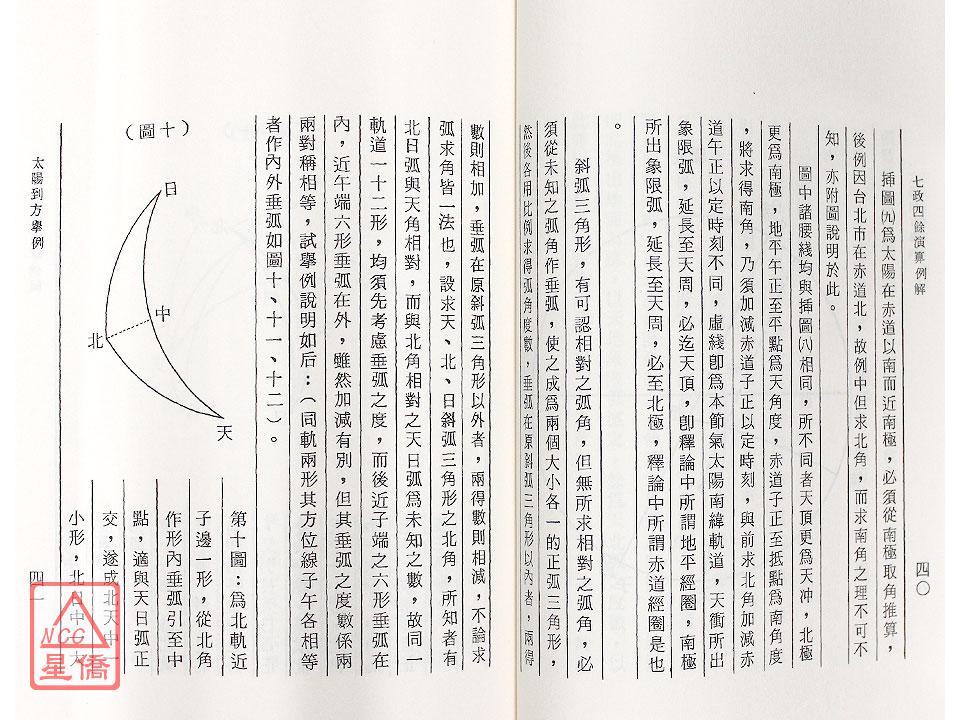 七政四餘演算例解
四〇
插圖㈨爲太陽在赤道以南而近南極，必須從南極取角推算，
後例因台北市在赤道北，故例中但求北角，而求南角之理不可不
知，亦附圖說明於此。
圖中諸腰綫均與插圖㈧相同，所不同者天頂更爲天冲，北極
更爲南極，地平午正至平點爲天角度，赤道子正至抵點爲南角度
，將求得南角，乃須加減赤道子正以定時刻，與前求北角加減赤
道午正以定時刻不同，虛綫卽爲本節氣太陽南緯軌道，天衝所出
象限弧，延長至天周，必迄天頂，卽釋論中所謂地平經圈，南極
所出象限弧，延長至天周，必至北極，釋論中所謂赤道經圈是也
。
斜弧三角形，有可認相對之弧角，但無所求相對之弧角，必
須從未知之弧角作垂弧，使之成爲兩個大小各一的正弧三角形，
然後各用比例求得弧角度數，垂弧在原斜弧三角形以內者，兩得
數則相加，垂弧在原斜弧三角形以外者，兩得數則相減，不論求
弧求角皆一法也，設求天、北、日斜弧三角形之北角，所知者有
北日弧與天角相對，而與北角相對之天日弧爲未知之數，故同一
軌道一十二形，均須先考慮垂弧之度，而後近子端之六形垂弧在
內，近午端六形垂弧在外，雖然加減有別，但其垂弧之度數係兩
兩對稱相等，試舉例說明如后：（同軌兩形其方位線子午各相等
者作內外垂弧如圖十、十一、十二）。
（圖十）
日
中
北
天
第十圖：爲北軌近
子邊一形，從北角
作形內垂弧引至中
點，適與天日弧正
交，遂成北天中一
小形，北日中一大
太陽到方舉例
四一
NCC
星僑